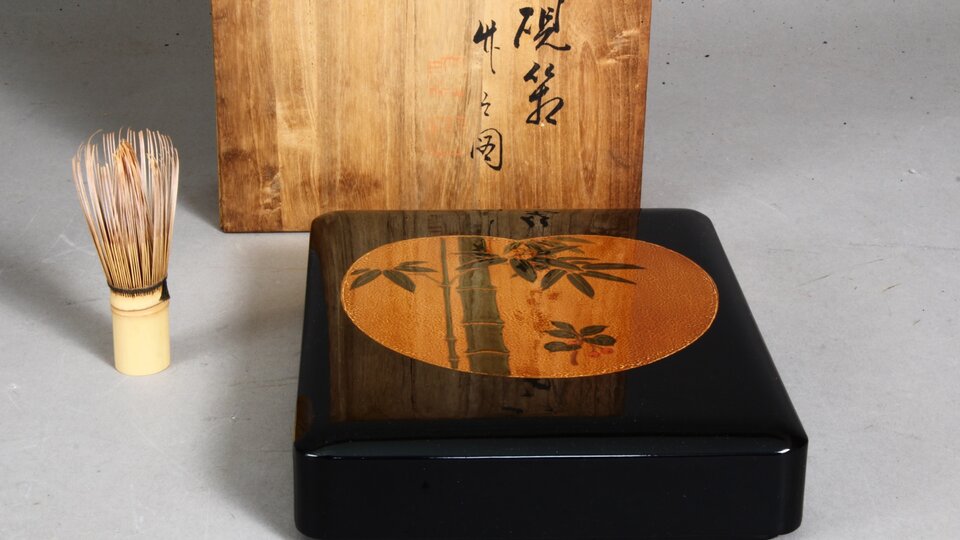 硯箱
竹之図